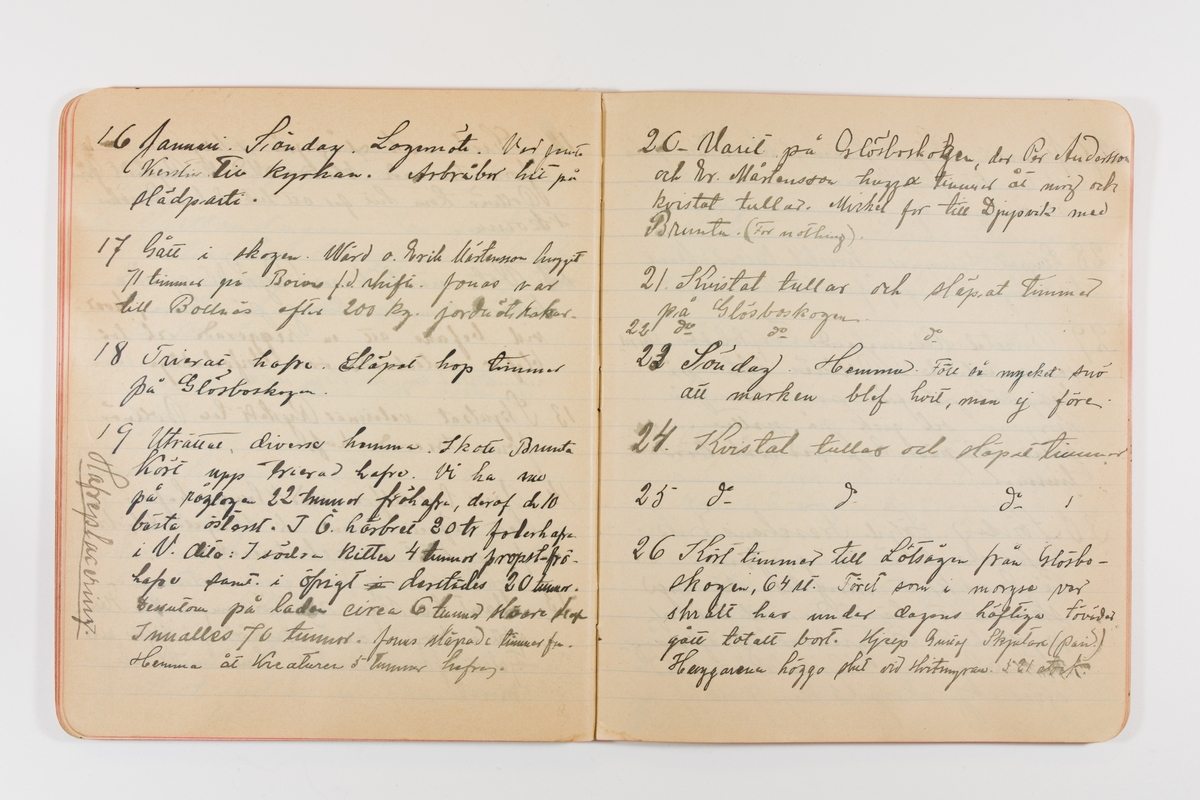 16 Januari. Söndag. Logmöte. Var
Kerstin till kyrkan. Arbråbor hit på
slädparti.
17 Gått i skogen. Wärd o. Erik Mårtensson hugget
71 timmer på f.d. skifte. Jonas var
till Bollnäs efter 200 kg. jordnötskakor.
18 Trierat hafre. Släpat hop timmer
på Glösboskogen.
19 Uträttat diverse hemma. Skott Brunta
Kört upp trierad hafre. Vi ha nu
på råglogen 22 tunnor fröhafre, deraf de 10
bästa österst. I Ö. härbret 30 tr foderhafre
i V. dito: I södra kitten 4 tunnor frö-
hafre samt i öfrigt derstädes 20 tunnor.
Dessutom på laden circa 6 tunnor
Innalles 70 tunnor. Jonas släpade timmer fm.
Hemma åt Kreaturen 5 tunnor hafre.
Hafreplacering.
20- Varit på Glösboskogen, der Per Andersson
och Er. Mårtensson hugga timmer åt mig och
kvistat tullar. Mickel for till Djupsvik med
Brunta. (For nothing).
21. Kvistat tullar och släpat timmer
på Glösboskogen.
22 do do do
23 Söndag. Hemma. Föll så mycket snö
att marken blef hvit, men ej före.
24. Kvistat tullar och släpat timmer
25 do do do
26 Kört timmer till Lötsågen från Glösbo-
skogen, 64 st. Föret som i morgse var
skralt har under dagens häftiga töväder
gått totalt bort. Skjutare (paid)
Huggarena höggo slut vid Hvitmyran. 521 stock.